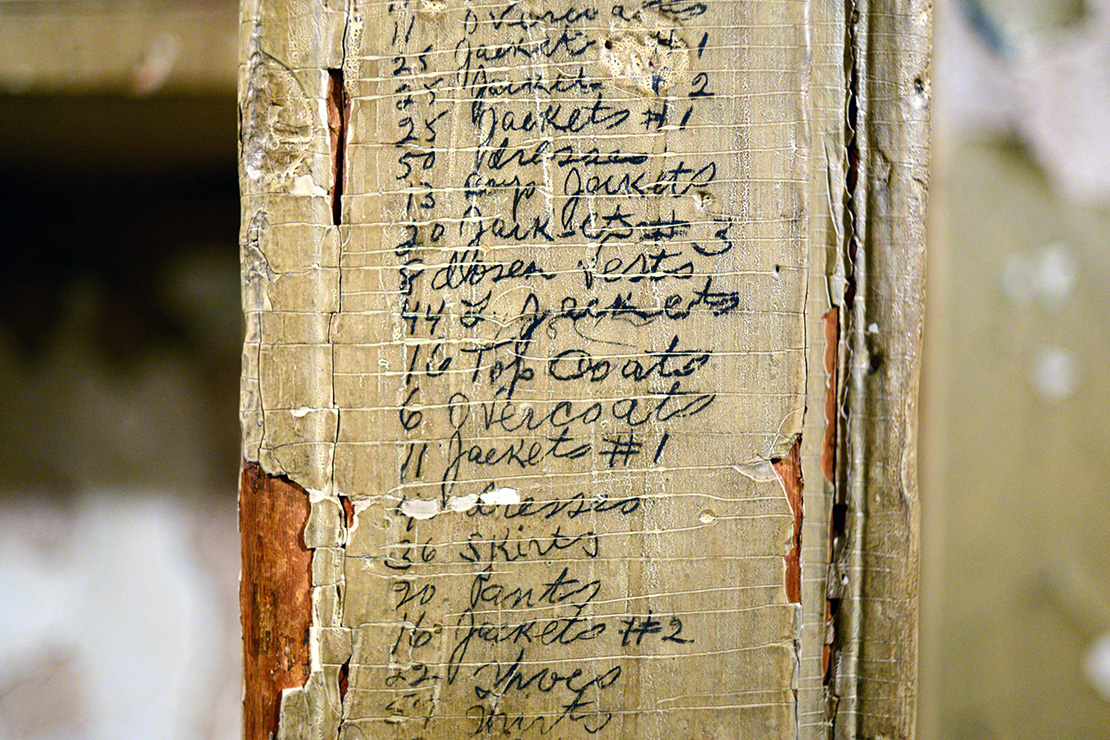 11 Overcoats
25 Jackets # 1
25 Jackets # 2
25 Jackets #1
50 dresses
13 Jackets
20 Jackets # 3
8 dozen Vests
44 L. Jackets
16 Top Coats
6 Overcoats
11 Jackets #1
dresses
36 Skirts
20 Pants
16 Jackets #2
22 Shoes
Shirts